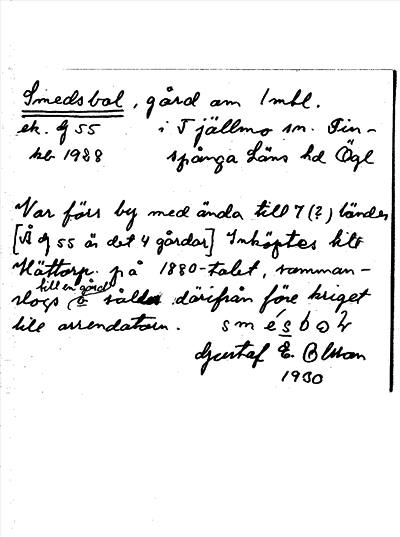 Smedsbol, gård om 1 mtl.
ek. bl 55 i Tjällmo sn. Fin-
kb 1988 spånga Läns hd Ögl
Var förr by med ända till 7 (?) bönder
[Å bl 55 är det 4 gårdar] Inköptes till
Hättorp på 1880-talet, samman-
till en gård
slogs o såldes därifrån före kriget
till arrendatorn. smésbol
Gustaf E. Olsson
1930